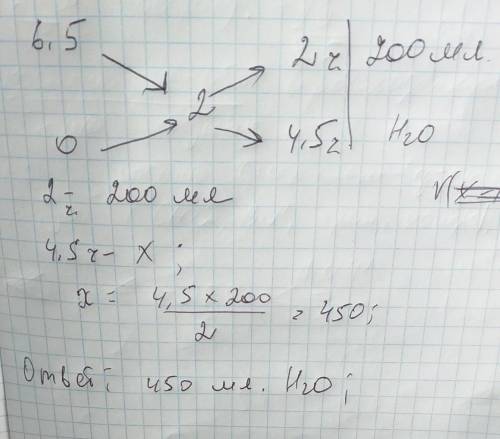 6,5 2ч 200 мл.
2
0 4,5ч H2O
2ч - 200 мл
4,5 ч - X ;
x = 4,5 × 200 / 2 = 450;
Ответ: 450 мл. H2O;